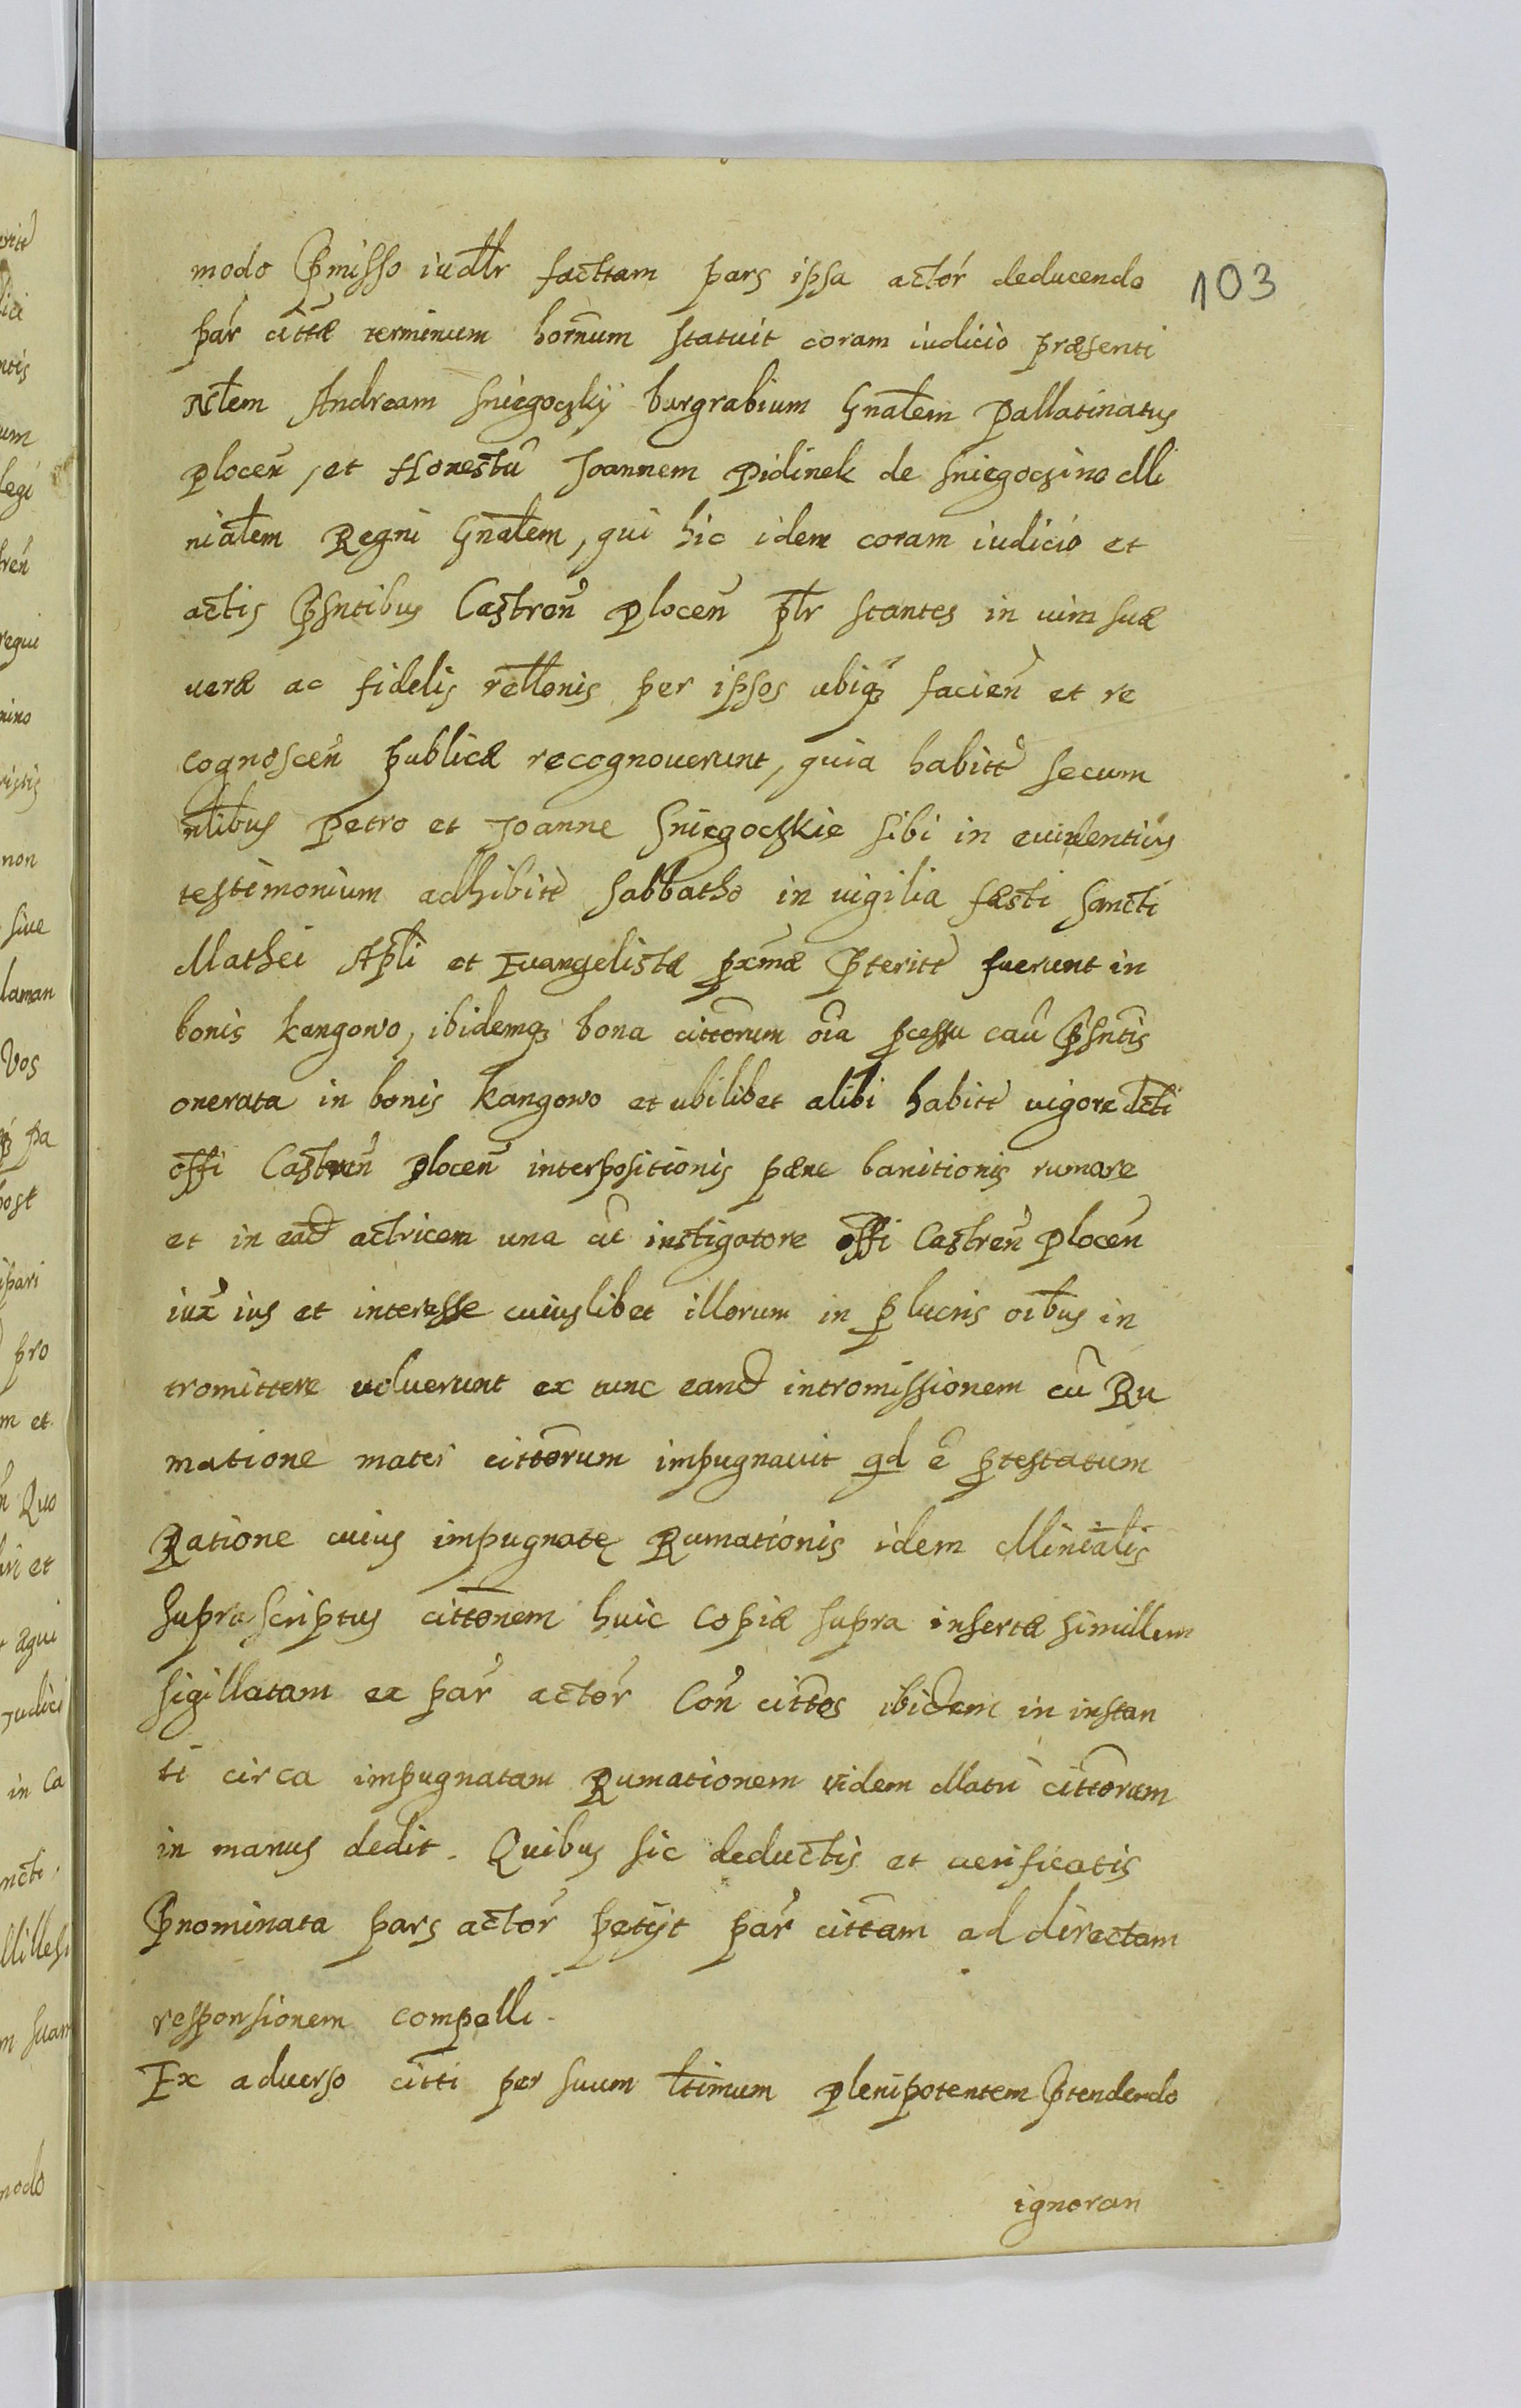 modo p̄misso iudłr facttam pars ipsa actor deducendo
103
par cittæ terminum hornum statuit coram iudicio præsenti
Nłem Andream Sniegoczkÿ burgrabium Gnałem Pallatinatus
plocen̄, et Honestū Joannem Pidinek de Sniegoczino Mi
niałem Regni Gnałem, qui hic idem coram iudicio et
actis p̄sntibus Castren̄ plocen̄ p̄łr stantes in uim suæ
ueræ ac fidelis rełłonis per ipsos ubiqꝫ facien̄ et re
cognoscen̄ publicæ recognouerunt, quia habitt secum
nłibus Petro et Joanne Sniegoczkie sibi in euidentius
testimonium adhibitt sabbatho in uigilia fæsti Sancti
Mathei Apłi et Euangelistæ pxmæ p̄teritt fuerunt in
bonis kangowo, ibidemqꝫ bona cittorum oīa pcessu cau p̄sntis
onerata in bonis kangowo et ubilibet alibi habitt uigore dcti
offi Castren̄ plocen̄ interpositionis pæne banitionis rumare
et in ead actricem una cū instigatore offi Castren̄ Plocen̄
iux ius et interesse cuiuslibet illorum in p lucris oībus in
tromittere uoluerunt ex tunc eand intromissionem cū Ru
matione mater cittorum impugnauit qd ē ptestatum
Ratione cuius impugnatę Rumationis idem Miniālis
supra scriptus cittonem huic copiæ supra insertæ simillem
sigillatam ex par actor Con cittos ibidem in instan
ti circa impugnatam Rumationem eidem Matri cittorum
in manus dedit. Quibus sic deductis et uerificatis
p̄nominata pars actor petÿt par cittam ad directam
responsionem compelli.
Ex aduerso citti per suum łtimum plenipotentem p̄tendendo
ignoran